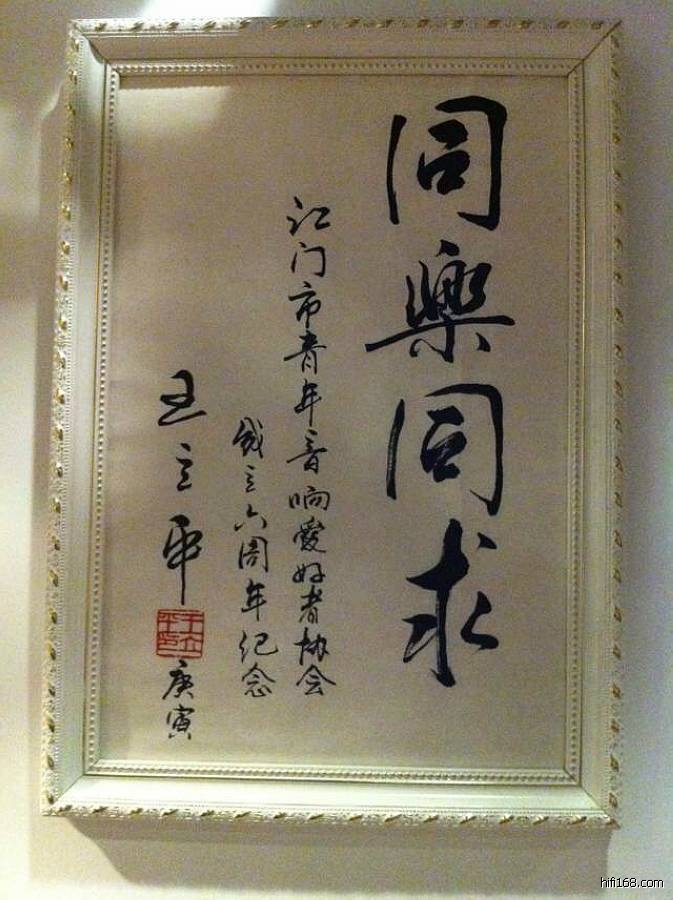 同樂同求
江门市青年音响愛好者协会
成立六周年纪念
王立平
庚寅
hifi168.com